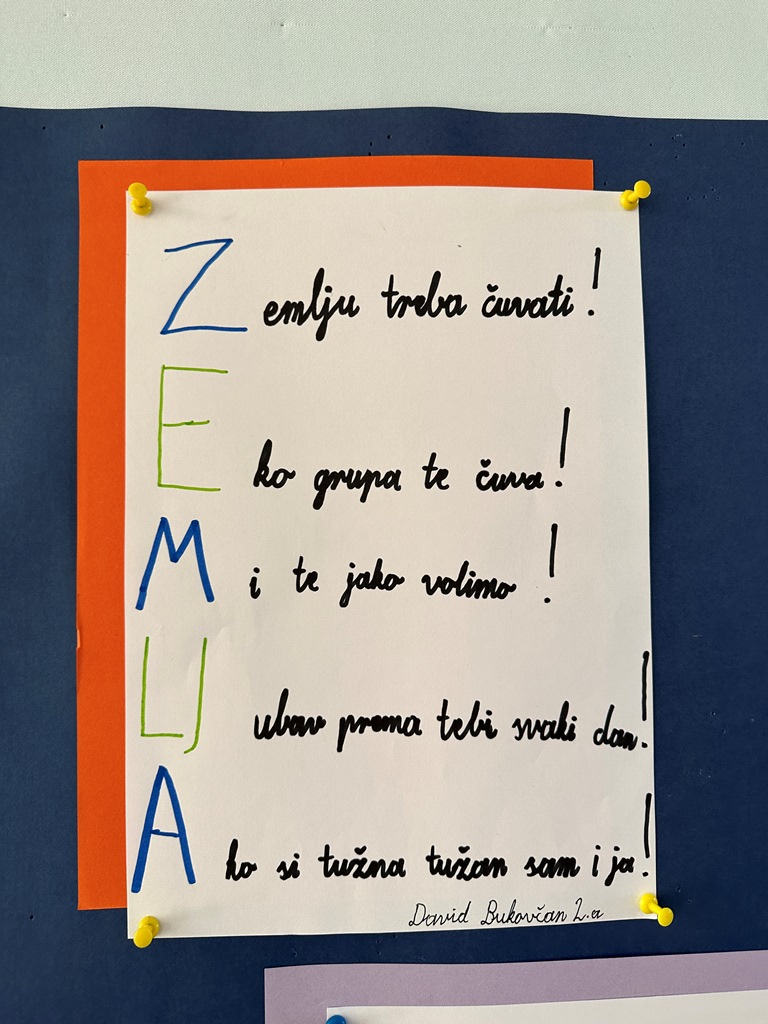 Zemlju treba čuvati!
Eko grupa te čuva!
Mi te jako volimo!
LJubav prema tebi svaki dan!
Ako si tužna tužan sam i ja!
David Bukovčan 2.a